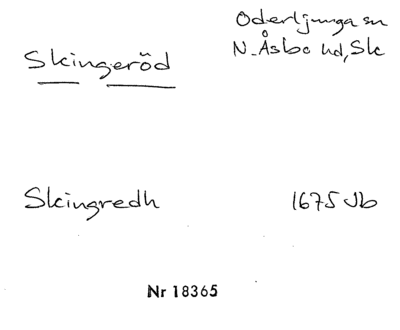 Oderljunga sn
Skingeröd N. Åsbo hd, Sk
Skingredh 1675 Jb
Nr 18365